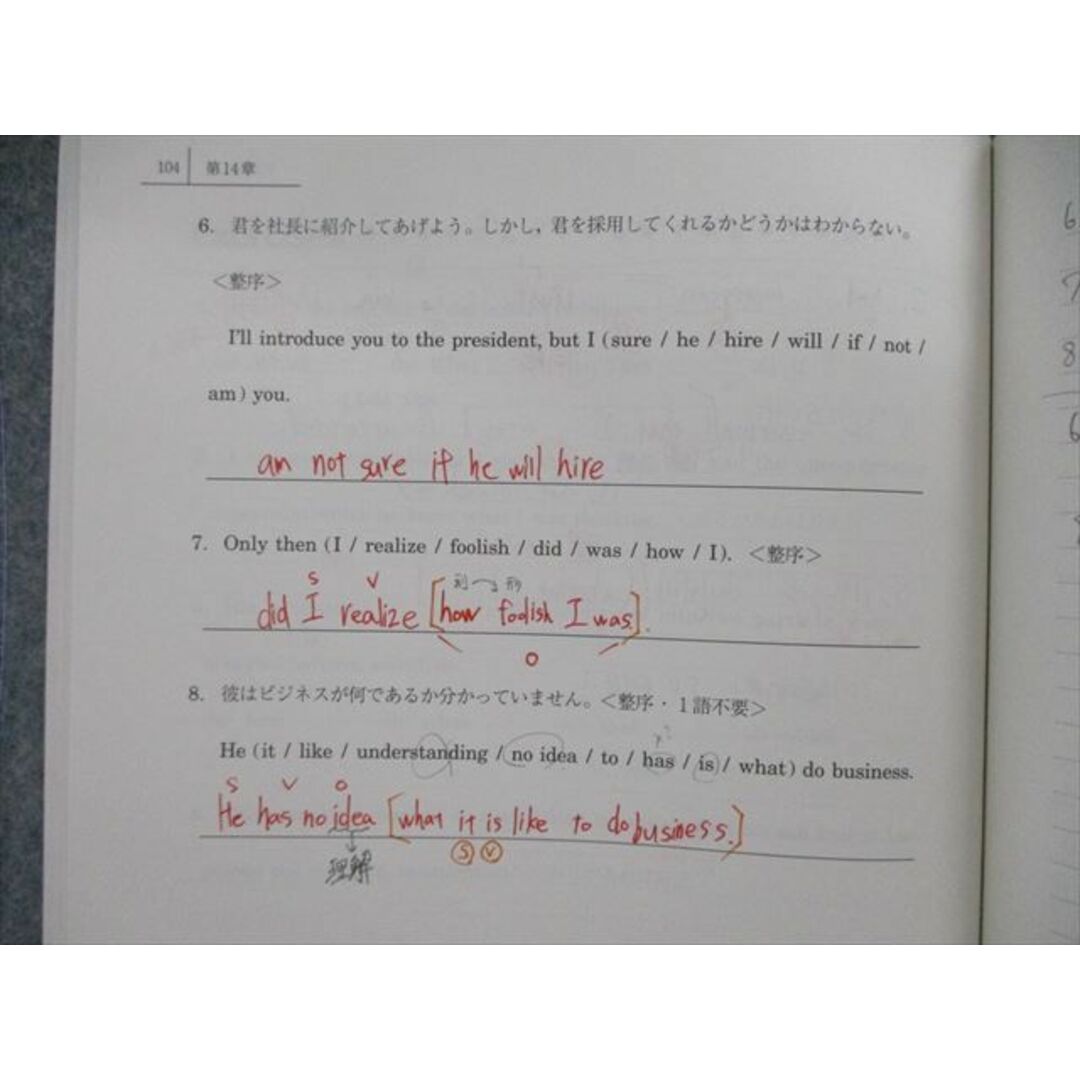 104 第14章
6. 君を社長に紹介してあげよう。しかし,君を採用してくれるかどうかはわからない。
<整序>
I'll introduce you to the president, but I (sure / he / hire / will / if / not /
am) you.
am not sure if he will hire
7. Only then (I / realize / foolish / did / was / how / I). <整序>
S V 形
did I realize [how foolish I was].
O
8. 彼はビジネスが何であるか分かっていません。<整序・1語不要>
He (it / like / understanding / no idea / to / has / is / what) do business.
S V O
He has no idea [what it is like to do business.]
S V
理解
6
7
8
6